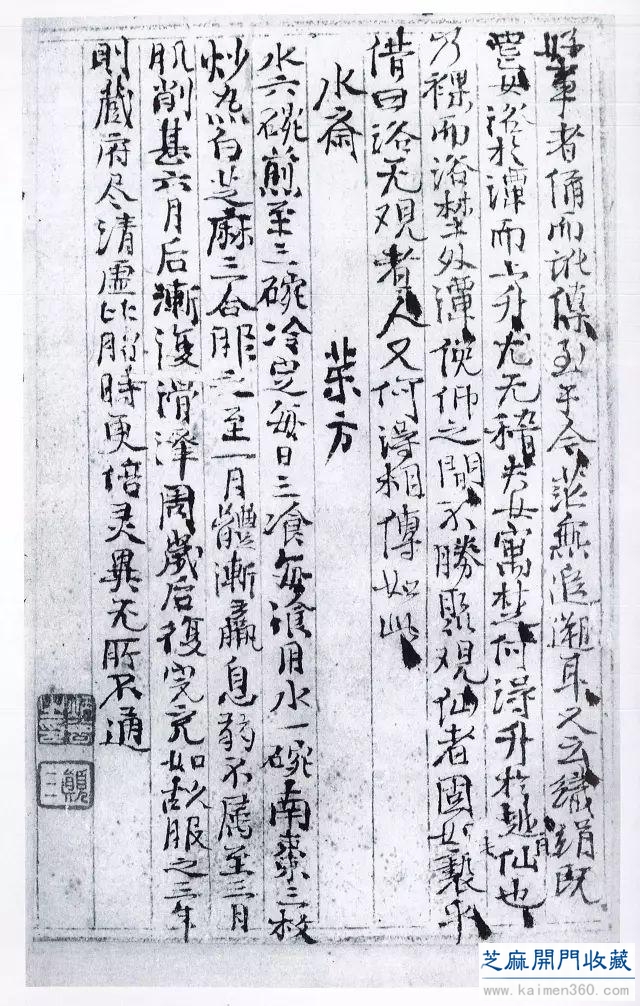 好事者俑而訛傳到乎今茫無追遡耳又云織絹既
豊女浴於潭而上升尤无稽夫女寓楚何得升於越仙也
乃裸而浴楚外潭傍仲之間不勝聚观仙者固如褻乎
借曰浴无观者人又何得相傳如此
水斋 柴方
水六碗煎至三碗冷定每日三飡每飡用水一碗南棗三枚
炒熟白芝麻三合服之至一月體漸羸息弱不属至三月
肌削甚六月后漸復滑澤周歲后復完充如故服之三年
則蔵府尽清虚比脱時更倍灵異无所不通
芝麻開門收藏
www.kaimen360.com